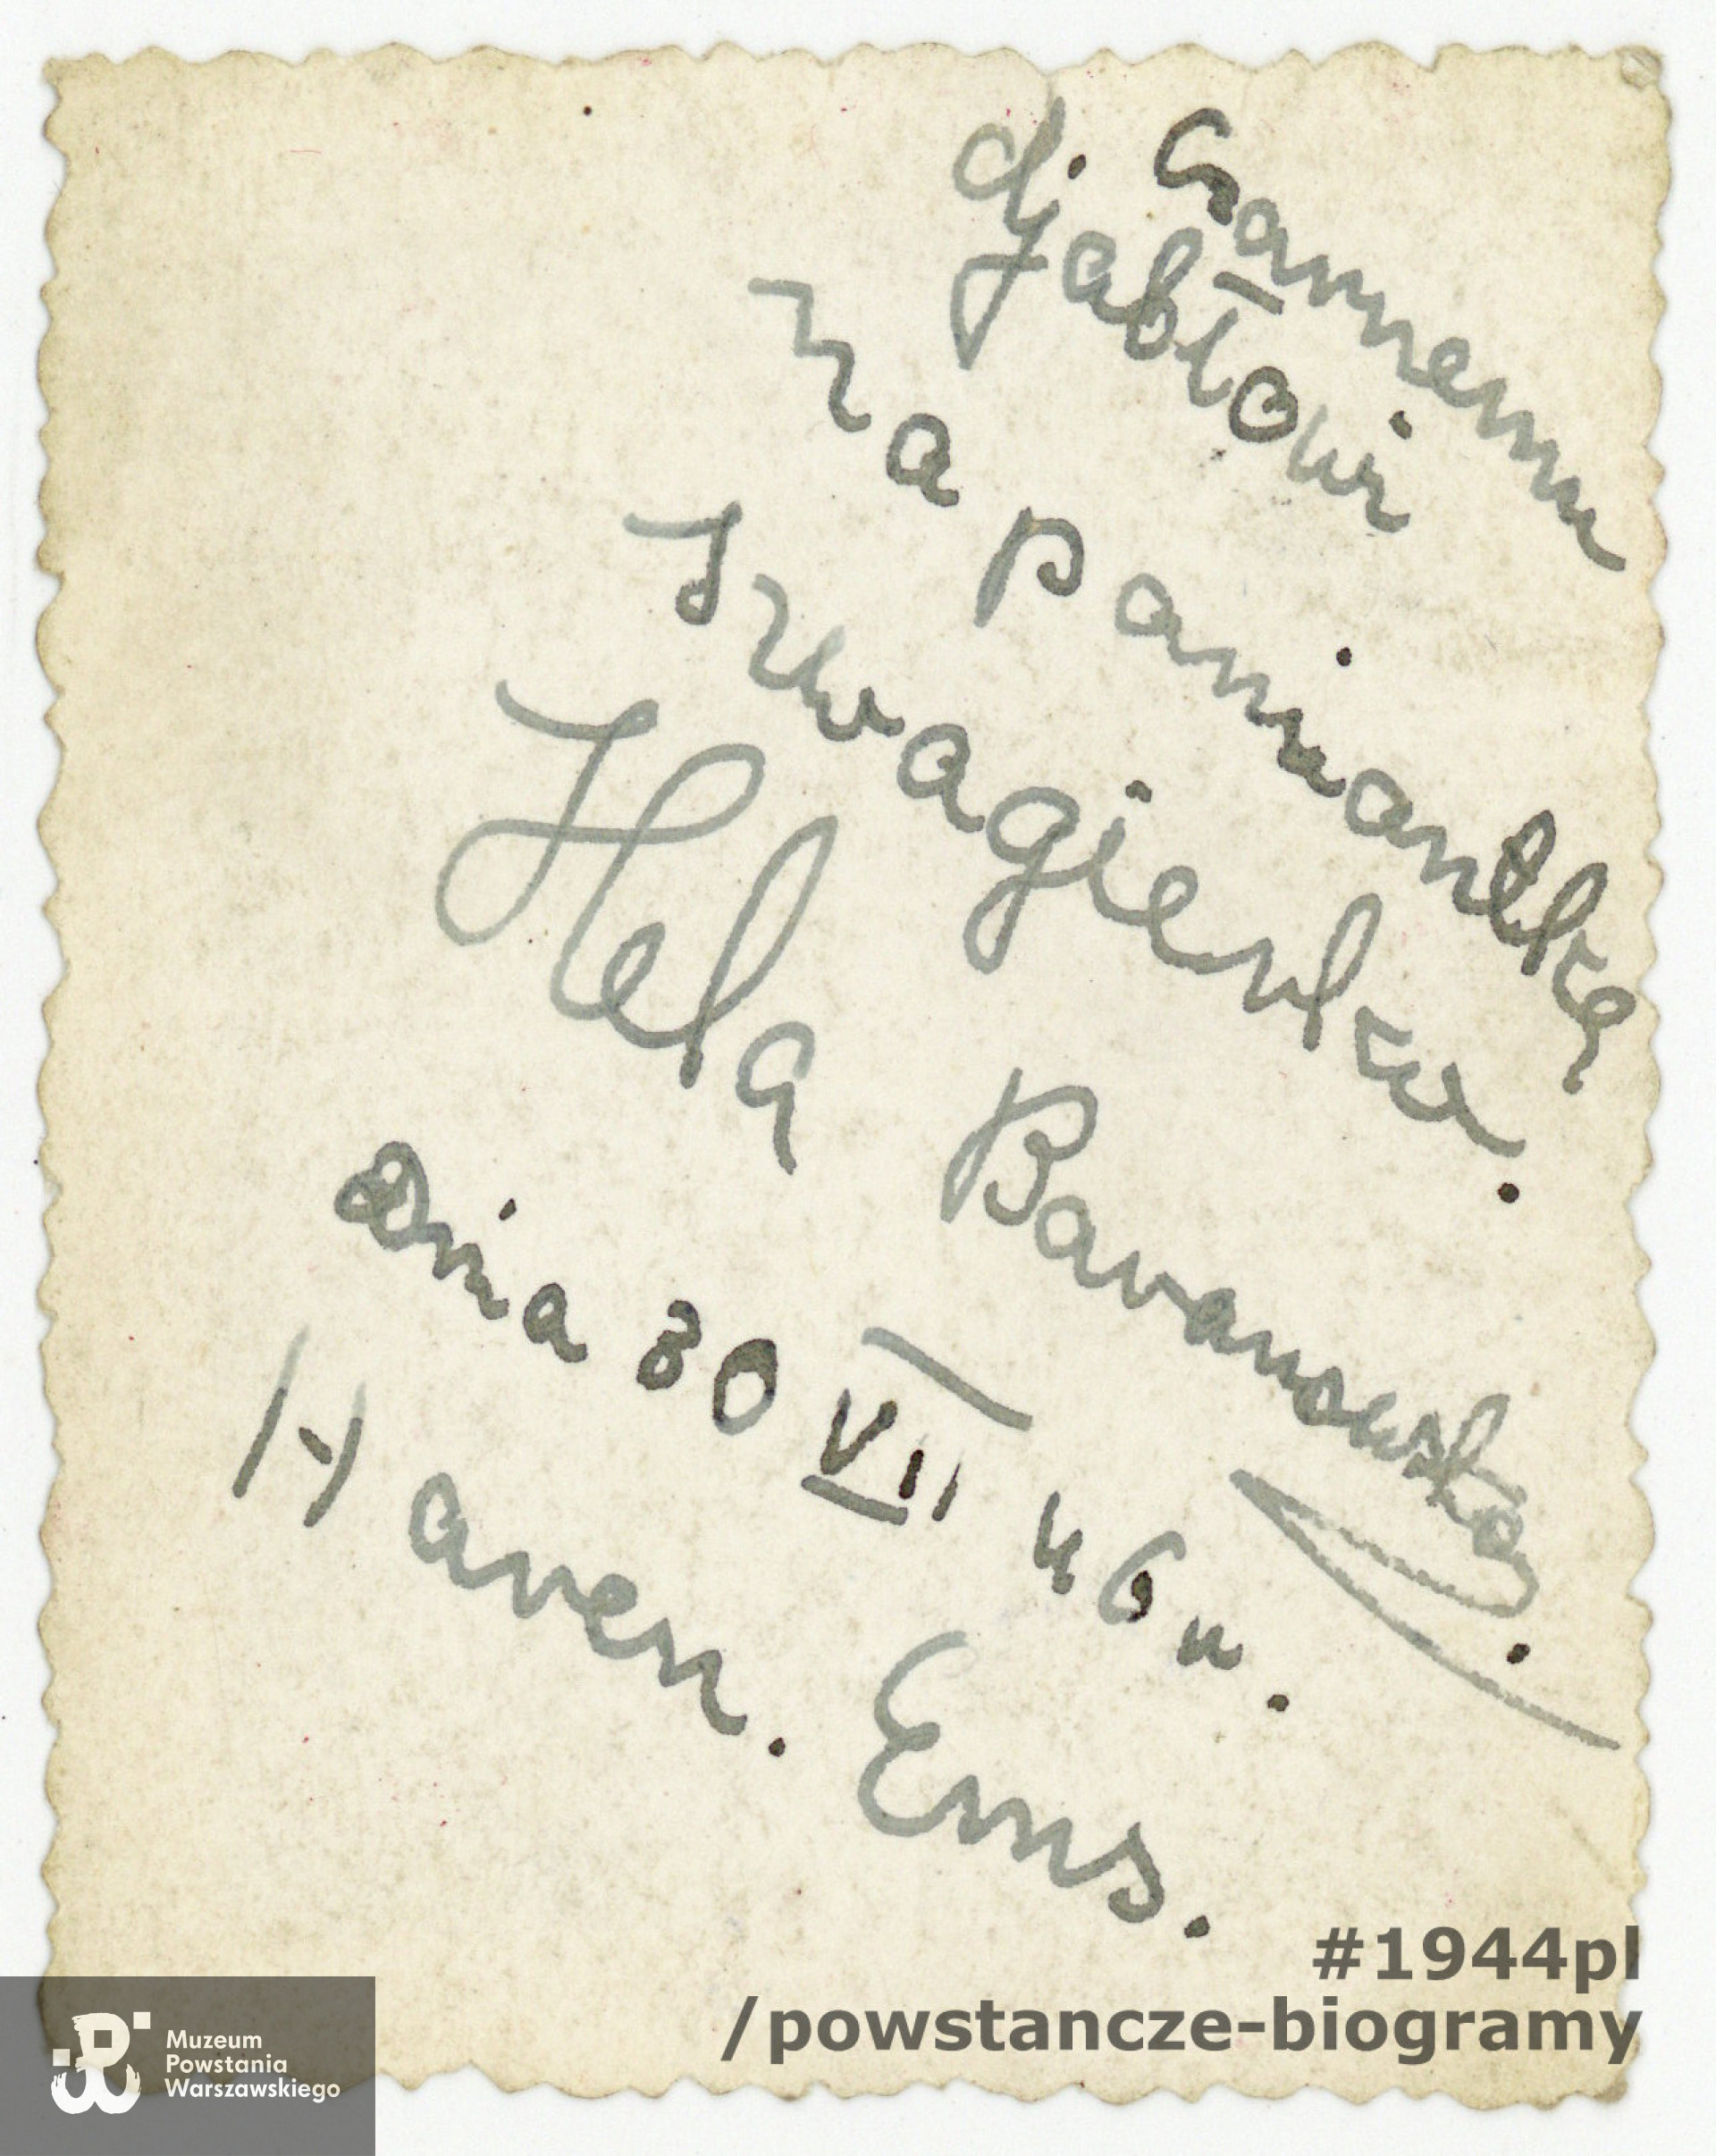 Czarnemu
djabłowi
na pamiantke
szwagierka.
Hela Baranowska.
Dnia 30 VII 46 r.
Haren. Ems.
#1944pl
/powstancze-biogramy
Muzeum
Powstania
Warszawskiego